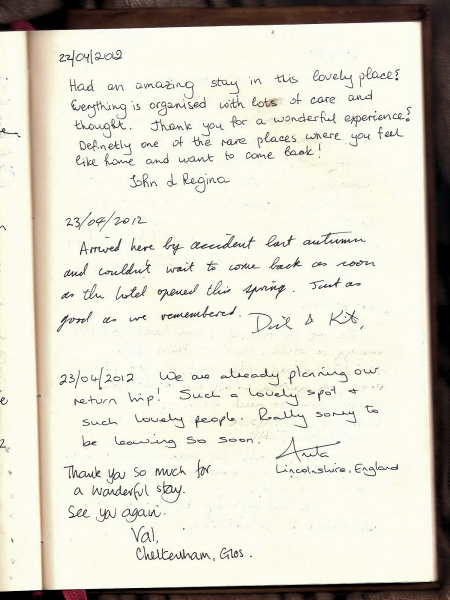 22/04/2012
Had an amazing stay in this lovely place!
Everything is organised with lots of care and
thought. Thank you for a wonderful experience!
Definetly one of the rare places where you feel
like home and want to come back!
John & Regina
23/04/2012
Arrived here by accident last autumn
and couldn't wait to come back as soon
as the hotel opened this spring. Just as
good as we remembered.
& Kit.
23/04/2012 We are already planning our
return trip! Such a lovely spot +
such lovely people. Really sorry to
be leaving so soon.
Anita
Lincolnshire, England
Thank you so much for
a wonderful stay.
See you again.
Val,
Cheltenham, Glos.